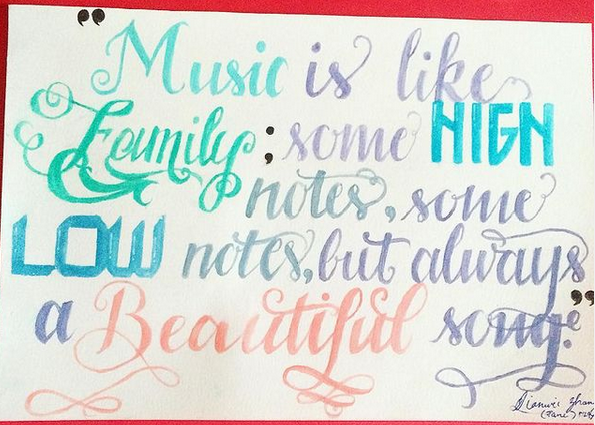 "Music is like
Family; some HIGH
notes, some
LOW notes, but always
a Beautiful song."